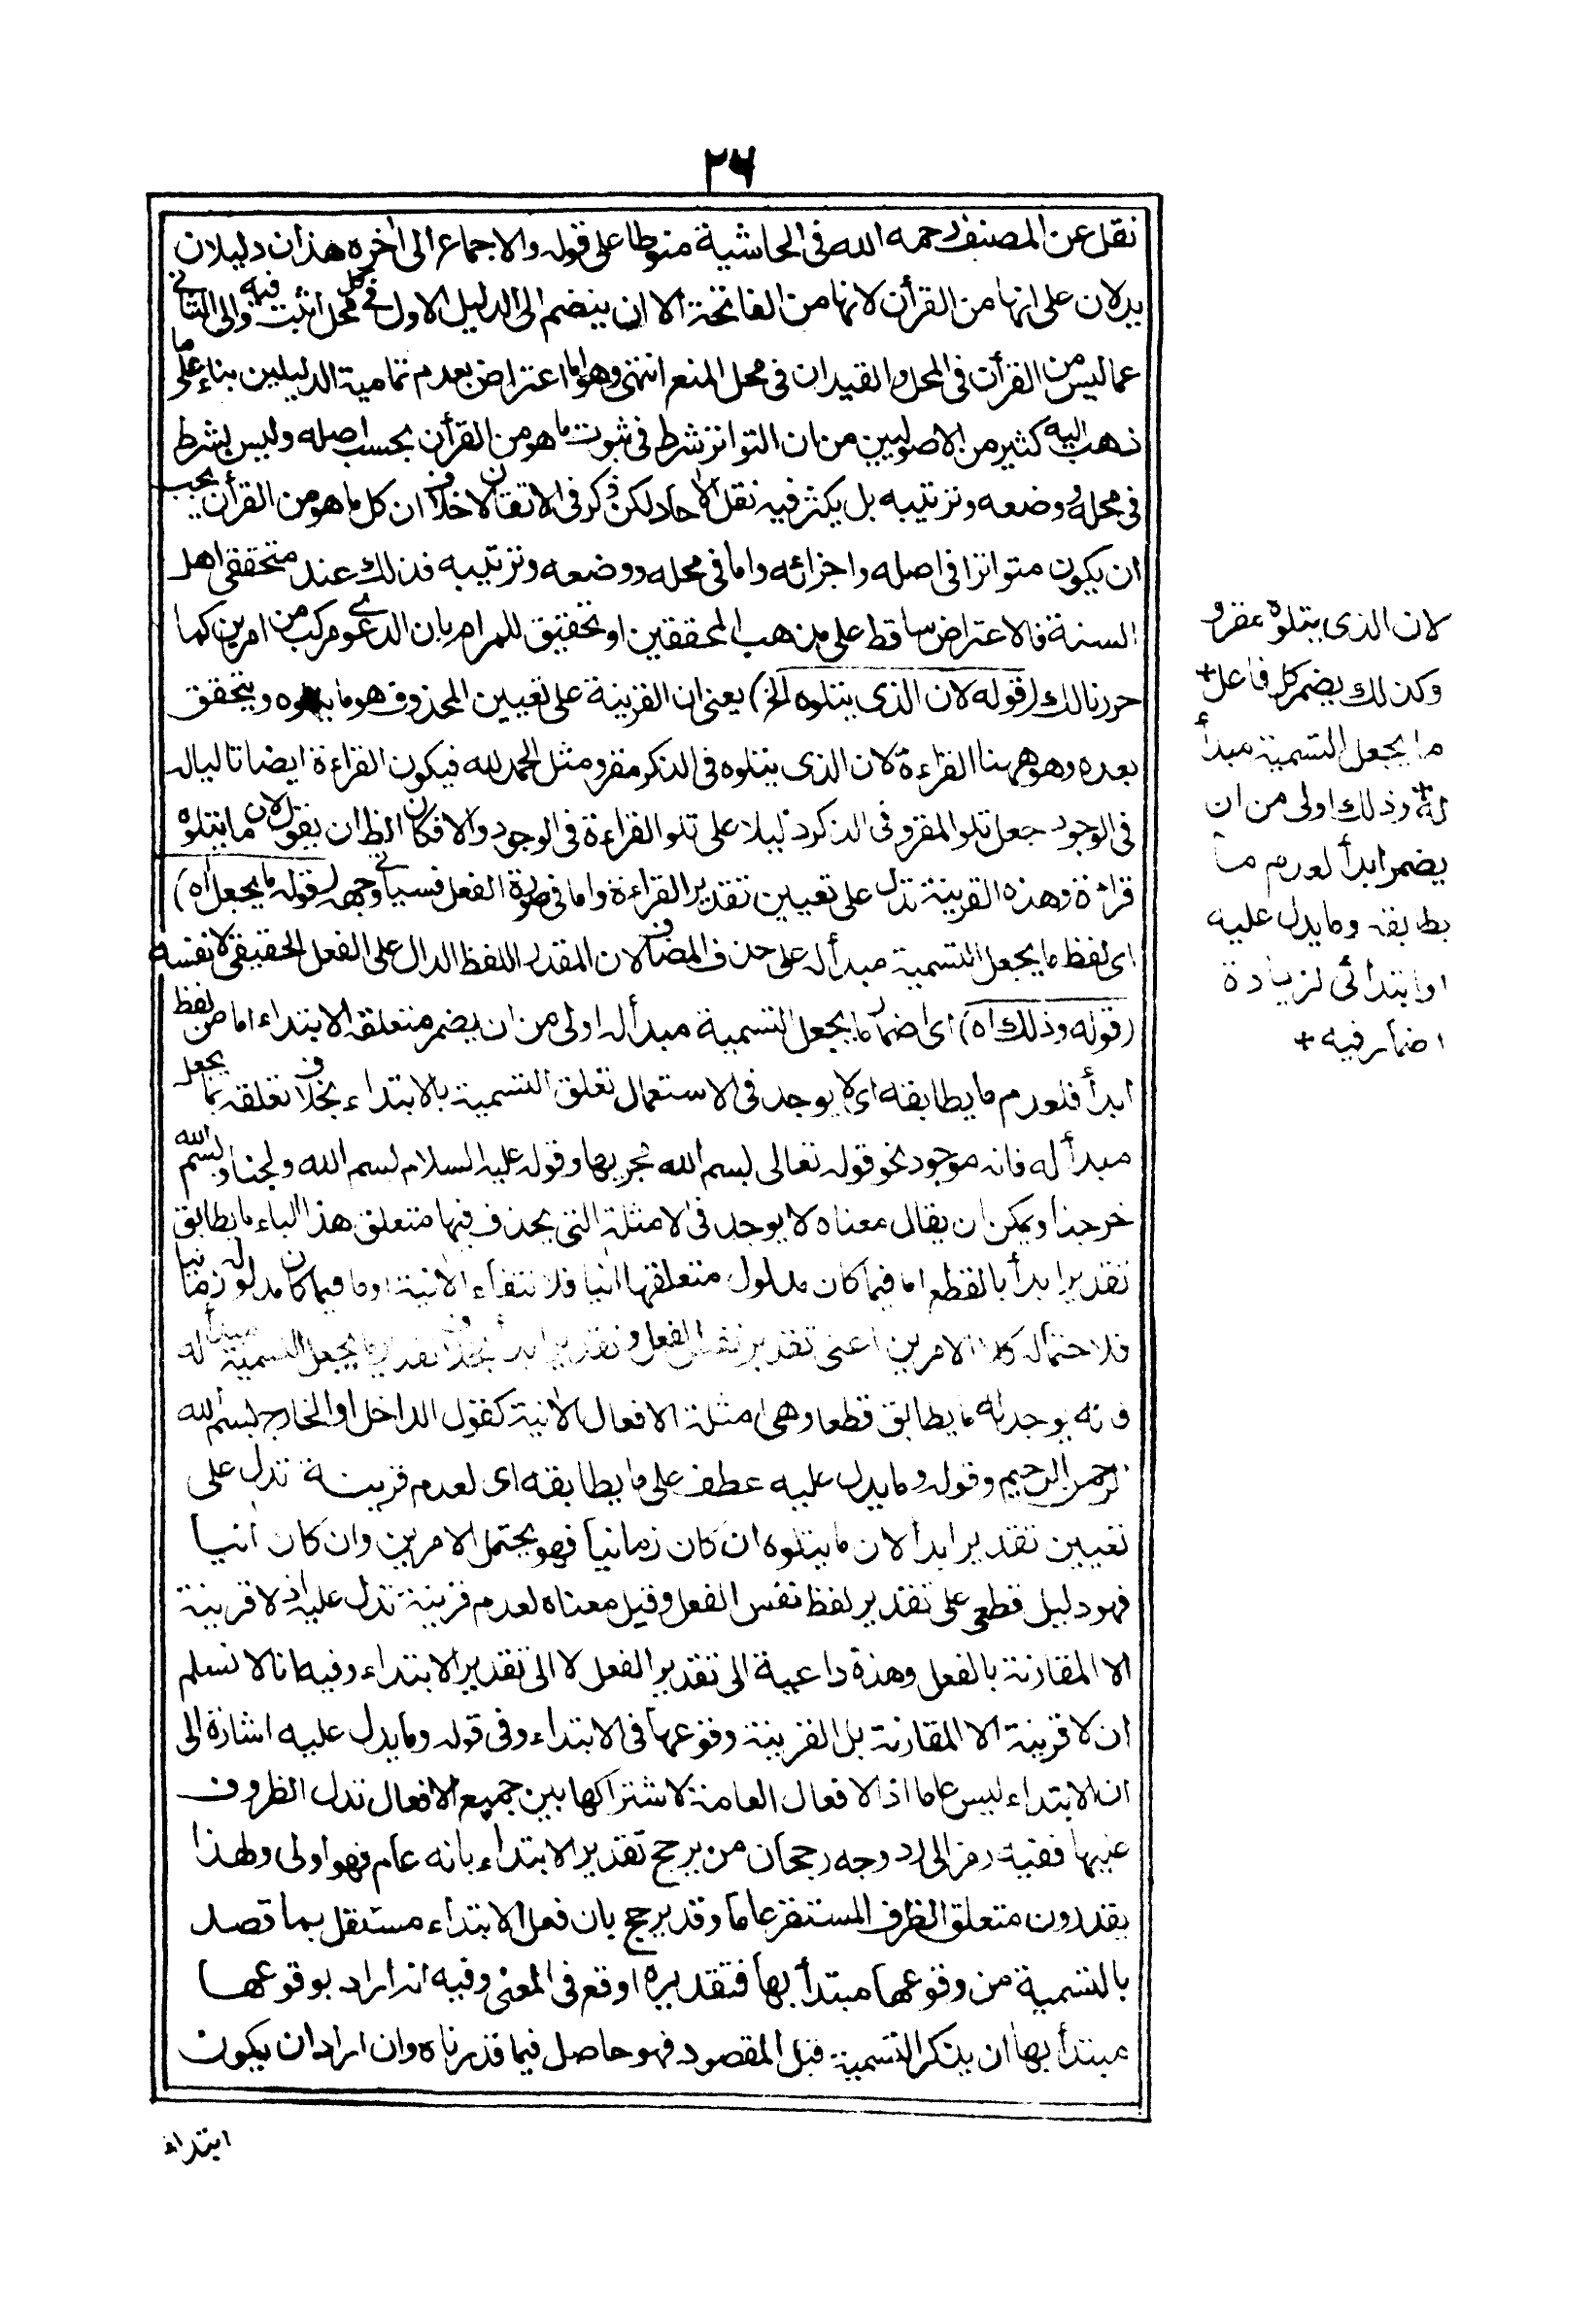 ٢٦
نقل عن المصنف رحمه الله فى الحاشية منوطا على قوله والاجماع الى اخره هذان دليلان
يدلان على انها من القرأن لا انها من الفاتحة الا ان ينضم الى الدليل الاول فى كل محل اثبت فيه والى الثانى
عما ليس من القرأن فى المحل والقيدان فى محل المنع انتهى وهو اما اعتراض بعدم تمامية الدليلين بناء على ما
ذهب اليه كثير من الاصوليين من ان التواتر شرط فى ثبوت ما هو من القرأن بحسب اصله وليس بشرط
فى محله ووضعه وترتيبه بل يكثر فيه نقل الاحاد لكن ذكر فى الاتقان لا خلاف ان كل ما هو من القرأن يجب
ان يكون متواترا فى اصله واجزائه واما فى محله ووضعه وترتيبه فذلك عند محققى اهل
السنة فالاعتراض ساقط على مذهب المحققين او تحقيق للمرام بان الدعوى مركب من امرين كما
حررنا لك (قوله لان الذى يتلوه الخ) يعنى ان القرينة على تعيين المحذوف هو ما يتلوه ويتحقق
بعده وهو ههنا القراءة لان الذى يتلوه فى الذكر مقرو مثل الحمد لله فيكون القراءة ايضا تاليا له
فى الوجود جعل تلو المقرو فى الذكر دليلا على تلو القراءة فى الوجود والا فكان الظ ان يقول لان ما يتلوه
قراءة وهذه القرينة تدل على تعيين تقدير القراءة واما فى صورة الفعل فسياتى وجهه (قوله ما يجعل اه)
اى لفظ ما يجعل التسمية مبدأ له على حذف المضاف لان المقدر اللفظ الدال على الفعل الحقيقى لا نفسه
(قوله وذلك اه) اى اضمار ما يجعل التسمية مبدأ له اولى من ان يضمر متعلقه الابتداء اما من لفظ
ابدأ فلعدم ما يطابقه اى لا يوجد فى الاستعمال تعلق التسمية بالابتداء بخلاف تعلقه بما يجعل
مبدأ له فانه موجود نحو قوله تعالى بسم الله مجريها وقوله عليه السلام بسم الله ولجنا وبسم الله
خرجنا ويمكن ان يقال معناه لا يوجد فى الامثلة التى يحذف فيها متعلق هذا الباء ما يطابق
تقدير ابدأ بالقطع اما فيما كان مدلول متعلقها انيا فلانتفاء الانية اوما فيما كان مدلوله زمانيا
فلاحتماله كلا الامرين اعنى تقدير نفس الفعل وتقدير ابدأ بخلاف تقدير ما يجعل التسمية مبدأ له
فانه يوجد له ما يطابق قطعا وهى امثلة الافعال الانية كقول الداخل او الخارج بسم الله
الرحمن الرحيم وقوله وما يدل عليه عطف على ما يطابقه اى لعدم قرينة تدل على
تعيين تقدير ابدأ لان ما يتلوه ان كان زمانيا فهو يحتمل الامرين وان كان انيا
فهو دليل قطعى على تقدير لفظ نفس الفعل وقيل معناه لعدم قرينة تدل عليه اذ لا قرينة
الا المقارنة بالفعل وهذه داعية الى تقدير الفعل لا الى تقدير الابتداء وفيه انا لا نسلم
ان لا قرينة الا المقارنة بل القرينة وقوعها فى الابتداء وفى قوله وما يدل عليه اشارة الى
ان الابتداء ليس عاما اذ الافعال العامة لاشتراكها بين جميع الافعال تدل الظروف
عليها ففيه رمز الى رد وجه رجحان من يرجح تقدير الابتداء بانه عام فهو اولى ولهذا
يقدرون متعلق الظرف المستقر عاما وقد يرجح بان فعل الابتداء مستقل بما قصد
بالتسمية من وقوعها مبتدأ بها فتقديره اوقع فى المعنى وفيه انه اراد بوقوعها
مبتدأ بها ان يذكر التسمية قبل المقصود فهو حاصل فيما قدرناه وان اراد ان يكون
ابتداء
لان الذى يتلوه مقرو
وكذلك يضمر كل فاعل +
ما يجعل التسمية مبدأ
له + وذلك اولى من ان
يضمر ابدأ لعدم ما
يطابقه وما يدل عليه
او ابتدائى لزيادة
اضمار فيه +